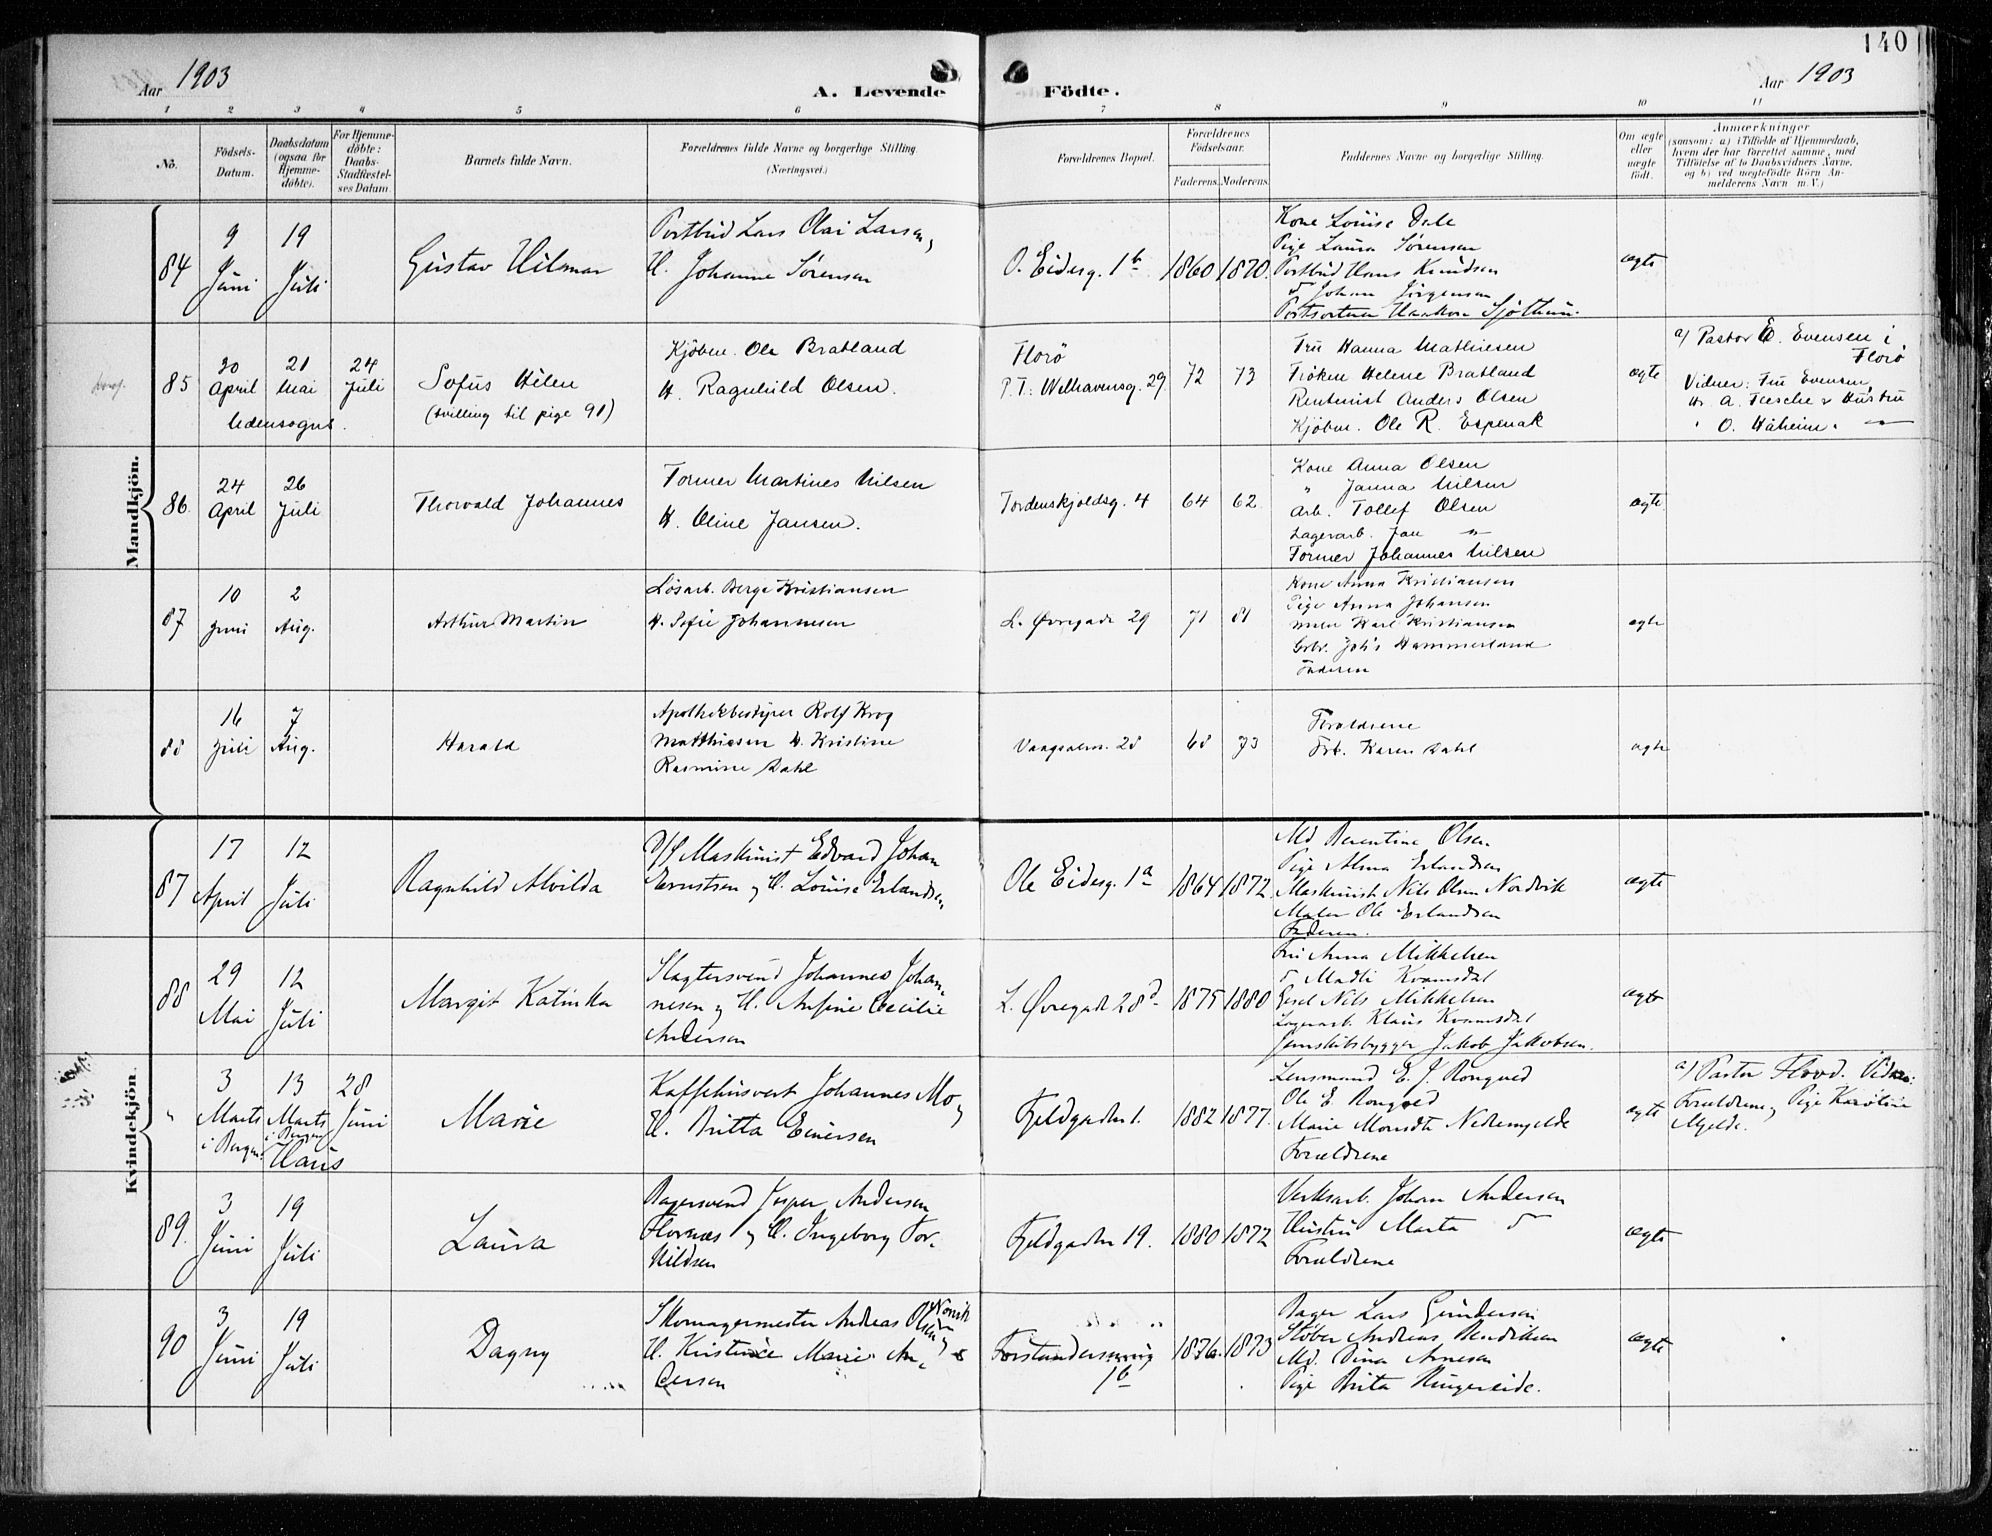 140
Aar 1903
A. Levende
Födte.
Aar 1903
1 2 3 4 5 6 7 8 9 10 11
No.
Födsels-
Datum.
Daabsdatum
(ogsaa for
Hjemme-
döbte).
For Hjemme-
döbte:
Daabs-
Stadfæstel-
ses Datum.
Barnets fulde Navn.
Forældrenes fulde Navne og borgerlige Stilling.
(Næringsvei.)
Forældrenes Bopæl.
Forældrenes
Födselsaar.
Faderens.
Moderens.
Faddernes Navne og borgerlige Stilling.
Om ægte
eller
uægte
födt.
Anmærkninger
(saasom: a) i Tilfælde af Hjemmedaab,
hvem der har forrettet samme, med
Tilföielse af to Daabsvidners Navne,
og b) ved uegtefödte Börn An-
melderens Navn m. V.)
Mandkjön.
84
9
Juni
19
Juli
Gustav Hilmar
Postbud Lars Olai Larsen,
H. Johanne Sørensen
O. Eidesg. 1b
1860
1870.
Kone Louise Dale
Pige Laura Sørensen
Postbud Hans Knudsen
Johan Jörgensen
Haakon Sjöthun.
ægte
85
30
April
21
Mai
24
Juli
Udensogns.
Sofus Hilen
(tvilling til pige 91)
Kjöbm. Ole Bratland
H. Ragnhild Olsen.
Florö
P.T.: Welhavensg. 29
72
73
Fru Hanna Mathiesen
Fröken Helene Bratland
Rentenist Anders Olsen
Kjöbm. Ole R. Espenak
ægte
a) Pastor E. Evensen i
Florö
Vidner: Fru Evensen,
Hr. A. Flesche & Hustru
" O. Håheim.
86
24
April
26
Juli
Thorvald Johannes
Former Martines Nilsen
H. Oline Jansen.
Tordenskjoldsg. 4
64
62.
Kone Anna Olsen
" Janna Nilsen
Arb. Tollef Olsen
Lagerarb. Jan "
Former Johannes Nilsen
ægte
87
10
Juni
2
Aug.
Arthur Martin
Løsarb. Berge Kristiansen
H. Sofie Johannesen
L. Øvregade 29
71
81
Kone Anna Kristiansen
Pige Anna Johansen
Karl Kristiansen
Joh's Hammersland
Faderen
ægte
88
16
Juli
7
Aug.
Harald
Apothekbestyrer Rolf Krog
Matthiesen H. Kristine
Rasmine Dahl
Vaagsalm. 28
68
73
Forældrene
Frk. Karen Dahl
ægte
Kvindekjön.
87
17
April
12
Juli
Ragnhild Alvilda
D/S Maskinist Edvard Johan
Ernstsen og H. Louise Erlandsen,
Ole Eidesg. 1a
1864
1872.
Md Berentine Olsen
Pige Alma Erlandsen
Maskinist Nils Olsen Nordvik
Maler Ole Erlandsen
Faderen.
ægte
88
29
Mai
12
Juli
Margit Katinka
Slagtersvend Johannes Johan-
nesen og H. Ansine Cecilie
Andersen
L. Øvregade 28d
1875
1880
Fru Anna Mikkelsen
Madli Kvamsdal
Nils Mikkelsen
Lagerarb. Klaus Kvamsdal
Jernskibsbygger Jakob Jakobsen.
ægte
"
3
Marts
i Bergen.
13
Marts
i Bergen
28
Juni
Haus
Marie
Kaffehusvert Johannes Mo,
H. Britta Einersen
Fjeldgaden 1.
1882
1877.
Lensmand E. J. Rongved
Ole E. Rongved
Marie Monsdtr Nedremjelde
Forældrene
ægte
a) Pastor Flood. Vidner:
Forældrene, Pige Karoline
Mjelde.
89.
3
Juni
19
Juli
Laura
Bagersvend Jesper Andersen
Flornæs og H. Ingeborg Tor-
kildsen
Fjeldgaden 19.
1880
1872
Verksarb. Johan Andersen
Hustru Marta
Forældrene
ægte
90
3
Juni
19
Juli
Dagny
Skomagermester Andreas Olsen
H. Kristence Marie An-
dersen
Forstandersmug
1b
1876.
1873
Bager Lars Gundersen
Støber Andreas Bendiksen
Md. Dina Arnesen
Pige Brita Ringereide.
ægte